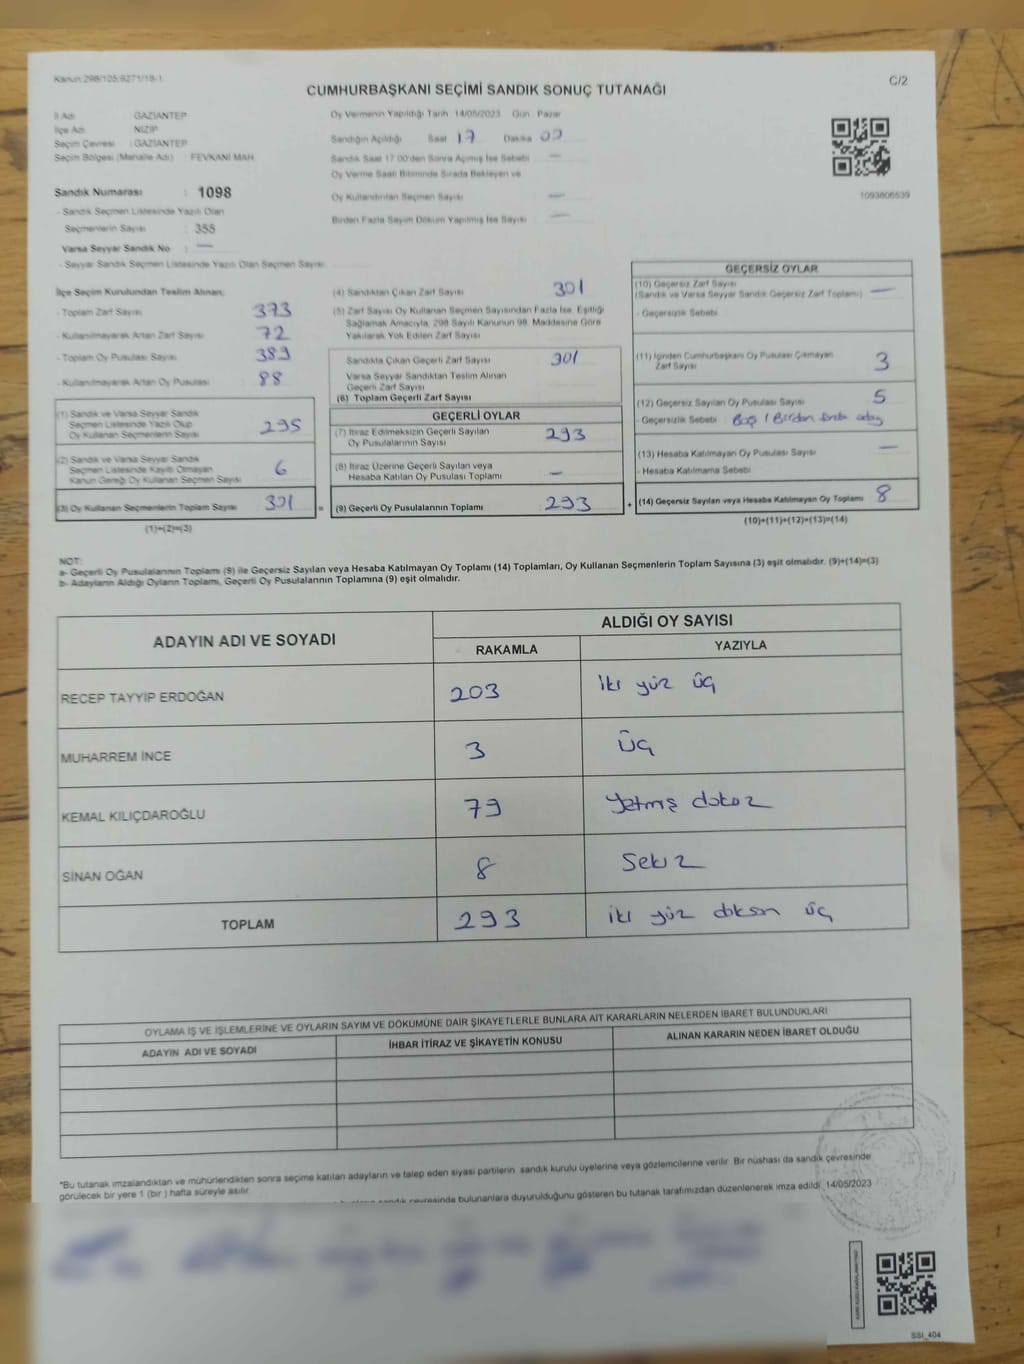 Kanun:298/105;6271/18-1
C/2
CUMHURBAŞKANI SEÇİMİ SANDIK SONUÇ TUTANAĞI
İl Adı GAZİANTEP
İlçe Adı NİZİP
Seçim Çevresi :GAZİANTEP
Seçim Bölgesi (Mahalle Adı) FEVKANİ MAH
Sandık Numarası : 1098
- Sandık Seçmen Listesinde Yazılı Olan
Seçmenlerin Sayısı : 355
Varsa Seyyar Sandık No : —
- Seyyar Sandık Seçmen Listesinde Yazılı Olan Seçmen Sayısı
Oy Vermenin Yapıldığı Tarih 14/05/2023 Gün Pazar
Sandığın Açıldığı Saat 17 Dakika 02
Sandık Saat 17:00'den Sonra Açılmış İse Sebebi —
Oy Verme Saati Bitiminde Sırada Bekleyen ve
Oy Kullandırılan Seçmen Sayısı —
Birden Fazla Sayım Döküm Yapılmış İse Sayısı —
1093606539
İlçe Seçim Kurulundan Teslim Alınan;
- Toplam Zarf Sayısı 373
- Kullanılmayarak Artan Zarf Sayısı 72
- Toplam Oy Pusulası Sayısı 389
- Kullanılmayarak Artan Oy Pusulası 88
(1) Sandık ve Varsa Seyyar Sandık
Seçmen Listesinde Yazılı Olup
Oy Kullanan Seçmenlerin Sayısı 295
(2) Sandık ve Varsa Seyyar Sandık
Seçmen Listesinde Kayıtlı Olmayan
Kanun Gereği Oy Kullanan Seçmen Sayısı 6
(3) Oy Kullanan Seçmenlerin Toplam Sayısı 301
(1)+(2)=(3)
(4) Sandıktan Çıkan Zarf Sayısı 301
(5) Zarf Sayısı Oy Kullanan Seçmen Sayısından Fazla İse, Eşitliği
Sağlamak Amacıyla, 298 Sayılı Kanunun 98. Maddesine Göre
Yakılarak Yok Edilen Zarf Sayısı
Sandıkta Çıkan Geçerli Zarf Sayısı 301
Varsa Seyyar Sandıktan Teslim Alınan
Geçerli Zarf Sayısı
(6) Toplam Geçerli Zarf Sayısı
GEÇERLİ OYLAR
(7) İtiraz Edilmeksizin Geçerli Sayılan
Oy Pusulalarının Sayısı 293
(8) İtiraz Üzerine Geçerli Sayılan veya
Hesaba Katılan Oy Pusulası Toplamı —
= (9) Geçerli Oy Pusulalarının Toplamı 293 +
GEÇERSİZ OYLAR
(10) Geçersiz Zarf Sayısı
(Sandık ve Varsa Seyyar Sandık Geçersiz Zarf Toplamı) —
- Geçersizlik Sebebi
(11) İçinden Cumhurbaşkanı Oy Pusulası Çıkmayan
Zarf Sayısı 3
(12) Geçersiz Sayılan Oy Pusulası Sayısı 5
- Geçersizlik Sebebi Boş / Birden fazla aday
(13) Hesaba Katılmayan Oy Pusulası Sayısı —
- Hesaba Katılmama Sebebi
(14) Geçersiz Sayılan veya Hesaba Katılmayan Oy Toplamı 8
(10)+(11)+(12)+(13)=(14)
NOT:
a- Geçerli Oy Pusulalarının Toplamı (9) ile Geçersiz Sayılan veya Hesaba Katılmayan Oy Toplamı (14) Toplamları, Oy Kullanan Seçmenlerin Toplam Sayısına (3) eşit olmalıdır. (9)+(14)=(3)
b- Adayların Aldığı Oyların Toplamı, Geçerli Oy Pusulalarının Toplamına (9) eşit olmalıdır.
ADAYIN ADI VE SOYADI
ALDIĞI OY SAYISI
RAKAMLA YAZIYLA
RECEP TAYYİP ERDOĞAN 203 iki yüz üç
MUHARREM İNCE 3 Üç
KEMAL KILIÇDAROĞLU 79 Yetmiş dokuz
SİNAN OĞAN 8 Sekiz
TOPLAM 293 iki yüz doksan üç
OYLAMA İŞ VE İŞLEMLERİNE VE OYLARIN SAYIM VE DÖKÜMÜNE DAİR ŞİKAYETLERLE BUNLARA AİT KARARLARIN NELERDEN İBARET BULUNDUKLARI
ADAYIN ADI VE SOYADI İHBAR İTİRAZ VE ŞİKAYETİN KONUSU ALINAN KARARIN NEDEN İBARET OLDUĞU
*Bu tutanak imzalandıktan ve mühürlendikten sonra seçime katılan adayların ve talep eden siyasi partilerin sandık kurulu üyelerine veya gözlemcilerine verilir. Bir nüshası da sandık çevresinde
görülecek bir yere 1 (bir ) hafta süreyle asılır.
sandık çevresinde bulunanlara duyurulduğunu gösteren bu tutanak tarafımızdan düzenlenerek imza edildi. 14/05/2023
SSI_404